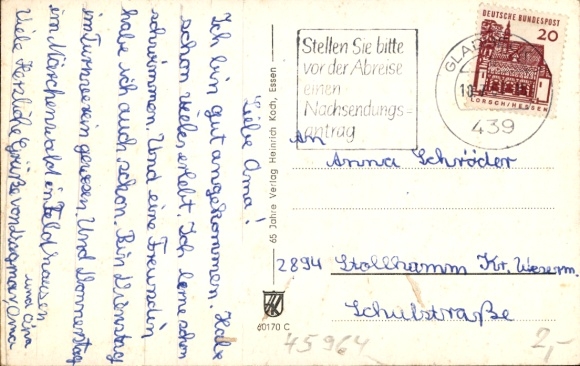 Liebe Oma!
Ich bin gut angekommen. Habe
schon vieles erlebt. Ich lerne schon
schwimmen. Und eine Freundin
habe ich auch schon. Bin Dienstag
im Turnverein gewesen. Und Donnerstag
im Märchenwald in Feldhausen.
Viele Herzliche Grüße von Dagmar Oma
und Opa
65 Jahre Verlag Heinrich Koch, Essen
60170 C
Stellen Sie bitte
vor der Abreise
einen
Nachsendungs-
antrag
439
DEUTSCHE BUNDESPOST
20
LORSCH/HESSEN
An
Anna Schröder
2894 Stollhamm Kr. Weserm.
Schulstraße
45964
2,-